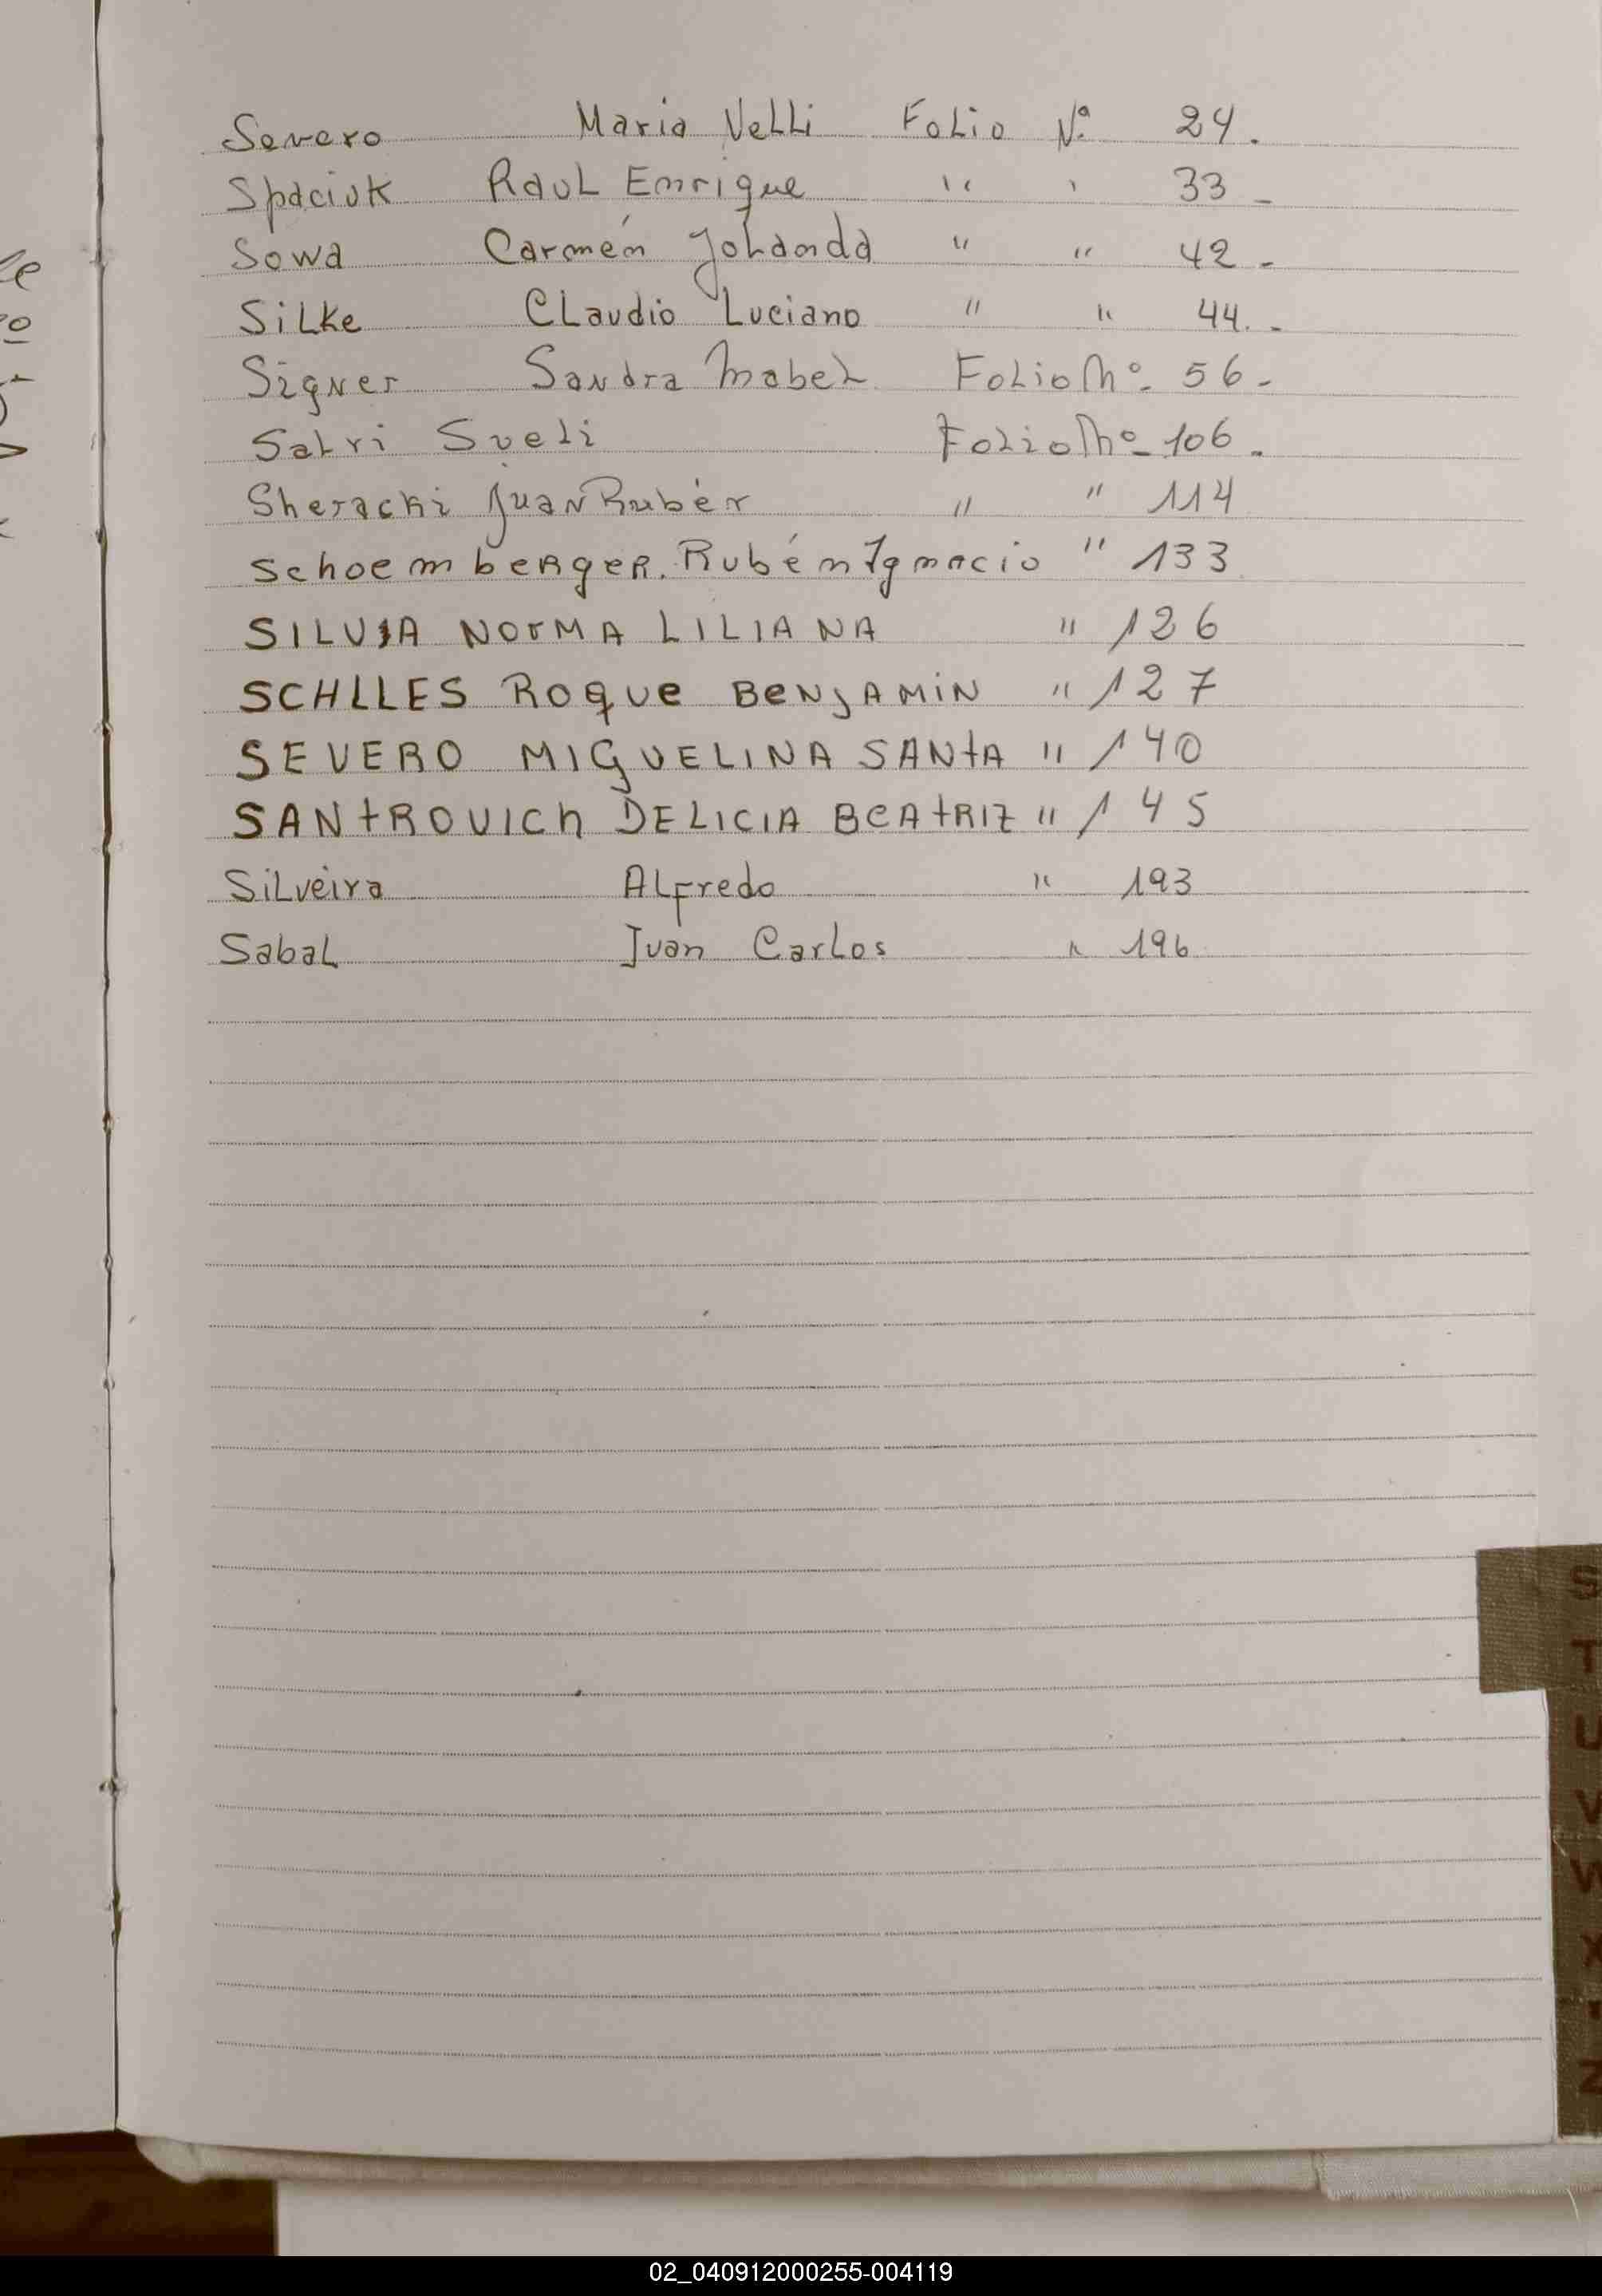 Severo Maria Nelli Folio Nº 24.
Spaciuk Raul Enrique " " 33 -
Sowa Carmén Johanda " " 42 -
Silke Claudio Luciano " " 44. -
Signer Sandra Mabel Folio Nº 56 -
Satri Sueli Folio Nº 106.
Sheracki Juan Rubér " " 114
Schoemberger. Rubén Ignacio " 133
SILVIA NORMA LILIANA " 126
SCHLLES Roque BENJAMIN " 127
SEVERO MIGUELINA SANTA " 140
SANTROVICH DELICIA BEATRIZ " 145
Silveira Alfredo " 193
Sabal Juan Carlos " 196
S
T
U
V
W
X
Z
02_040912000255-004119